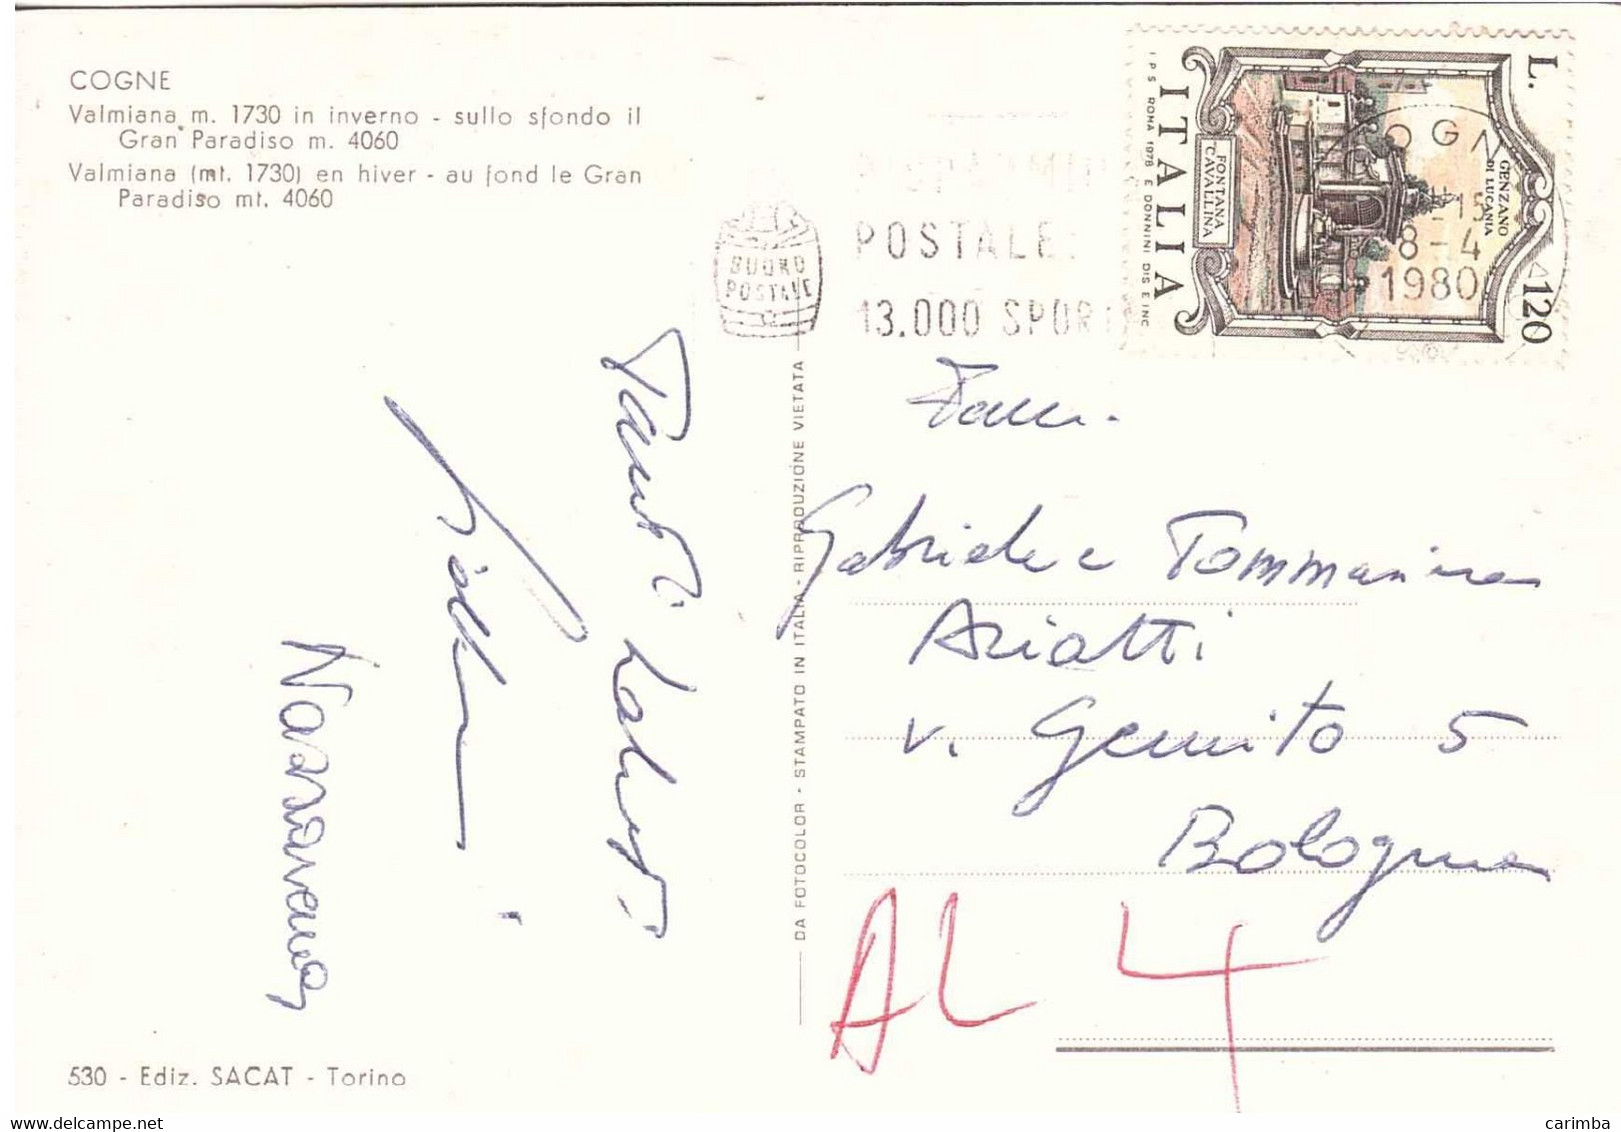 COGNE
Valmiana m. 1730 in inverno - sullo sfondo il
Gran Paradiso m. 4060
Valmiana (mt. 1730) en hiver - au fond le Gran
Paradiso mt. 4060
BUONO
POSTALE
POSTALE
13.000 SPOR
L. 120
GENZANO
DI LUCANIA
FONTANA
CAVALLINA
ITALIA
I.P.S. ROMA 1978 E DONNINI DIS E INC
COGN
15
8-4
1980
DA FOTOCOLOR - STAMPATO IN ITALIA - RIPRODUZIONE VIETATA
Fam.
Gabriele e Tommasina
Ariatti
v. Gemito 5
Bologna
AL 4
530 - Ediz. SACAT - Torino